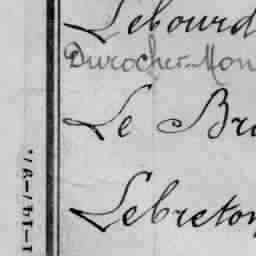 Lebourd
Durocher-Mon
Le Bre
Lebreton